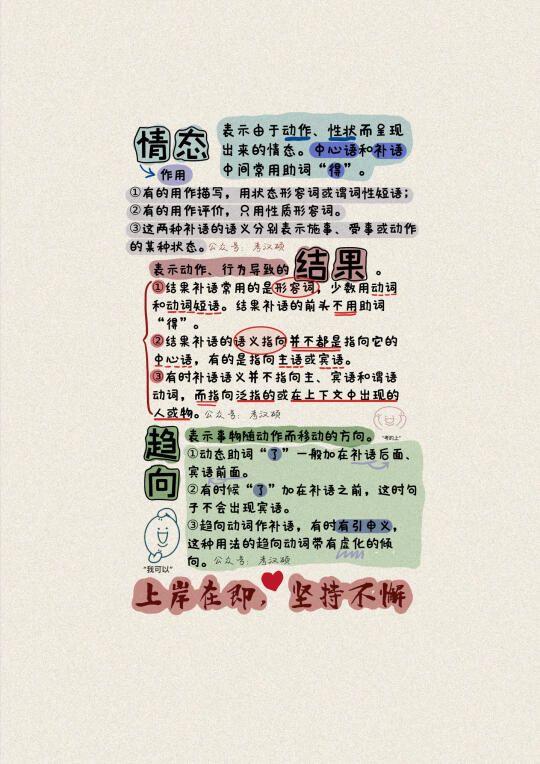 情态
表示由于动作、性状而呈现
出来的情态。中心语和补语
中间常用助词“得”。
作用
①有的用作描写，用状态形容词或谓词性短语；
②有的用作评价，只用性质形容词。
③这两种补语的语义分别表示施事、受事或动作
的某种状态。公众号：考汉硕
表示动作、行为导致的结果。
①结果补语常用的是形容词，少数用动词
和动词短语。结果补语的前头不用助词
“得”。
②结果补语的语义指向并不都是指向它的
中心语，有的是指向主语或宾语。
③有时补语语义并不指向主、宾语和谓语
动词，而指向泛指的或在上下文中出现的
人或物。公众号：考汉硕
“考的上”
趋向
表示事物随动作而移动的方向。
①动态助词“了”一般加在补语后面、
宾语前面。
②有时候“了”加在补语之前，这时句
子不会出现宾语。
③趋向动词作补语，有时有引申义，
这种用法的趋向动词带有虚化的倾
向。公众号：考汉硕
“我可以”
上岸在即，坚持不懈